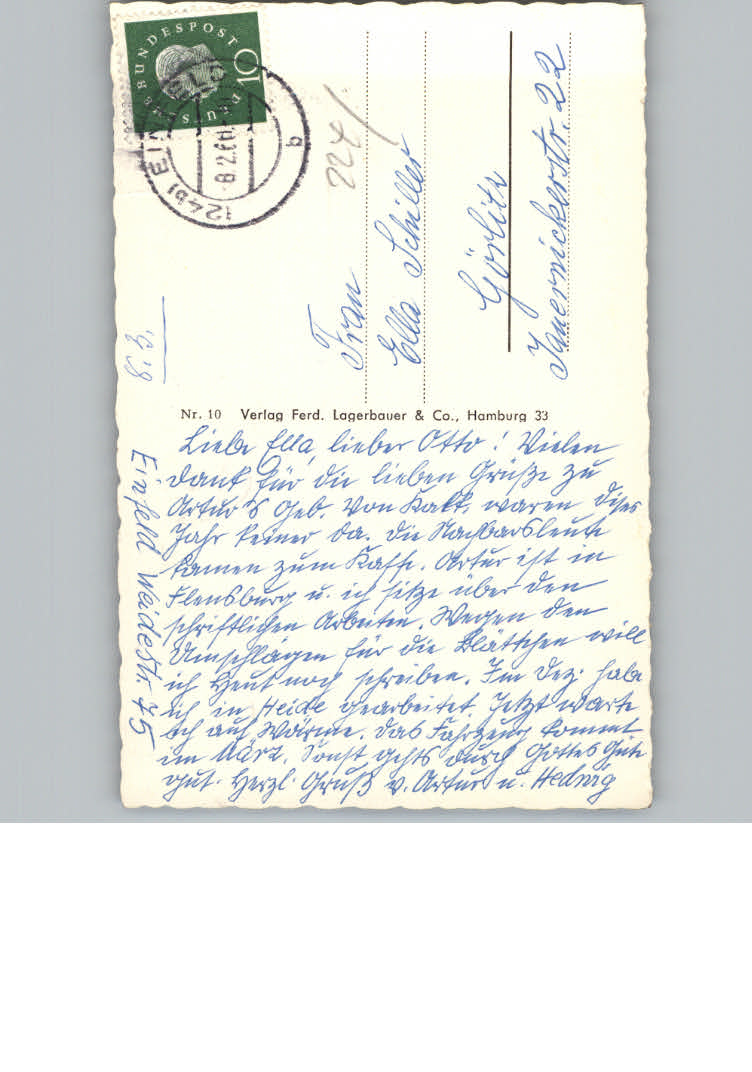 DEUTSCHE BUNDESPOST
10
(24b) EINFELD
8.2.61
b
224
Frau
Ella Schiller
Görlitz
Jauernickerstr. 22
8.2.
Nr. 10 Verlag Ferd. Lagerbauer & Co., Hamburg 33
Liebe Ella, lieber Otto! Vielen
Dank für die lieben Grüße zu
Artur's Geb. Von Kalt. waren dises
Jahr keiner da. Die Nachbarsleute
kamen zum Kaffe. Artur ist in
Flensburg u. ich sitze über den
schriftlichen Arbeiten. Wegen den
Umschlägen für die Blättchen will
ich heut noch schreiben. Im Dez. habe
ich in Heide gearbeitet. Jetzt warte
ich auf Wärme. Das Fahrzeug kommt
im März. Sonst gehts durch Gottes Güte
gut. Herzl. Gruß v. Artur u. Hedwig
Einfeld Weidestr. 75